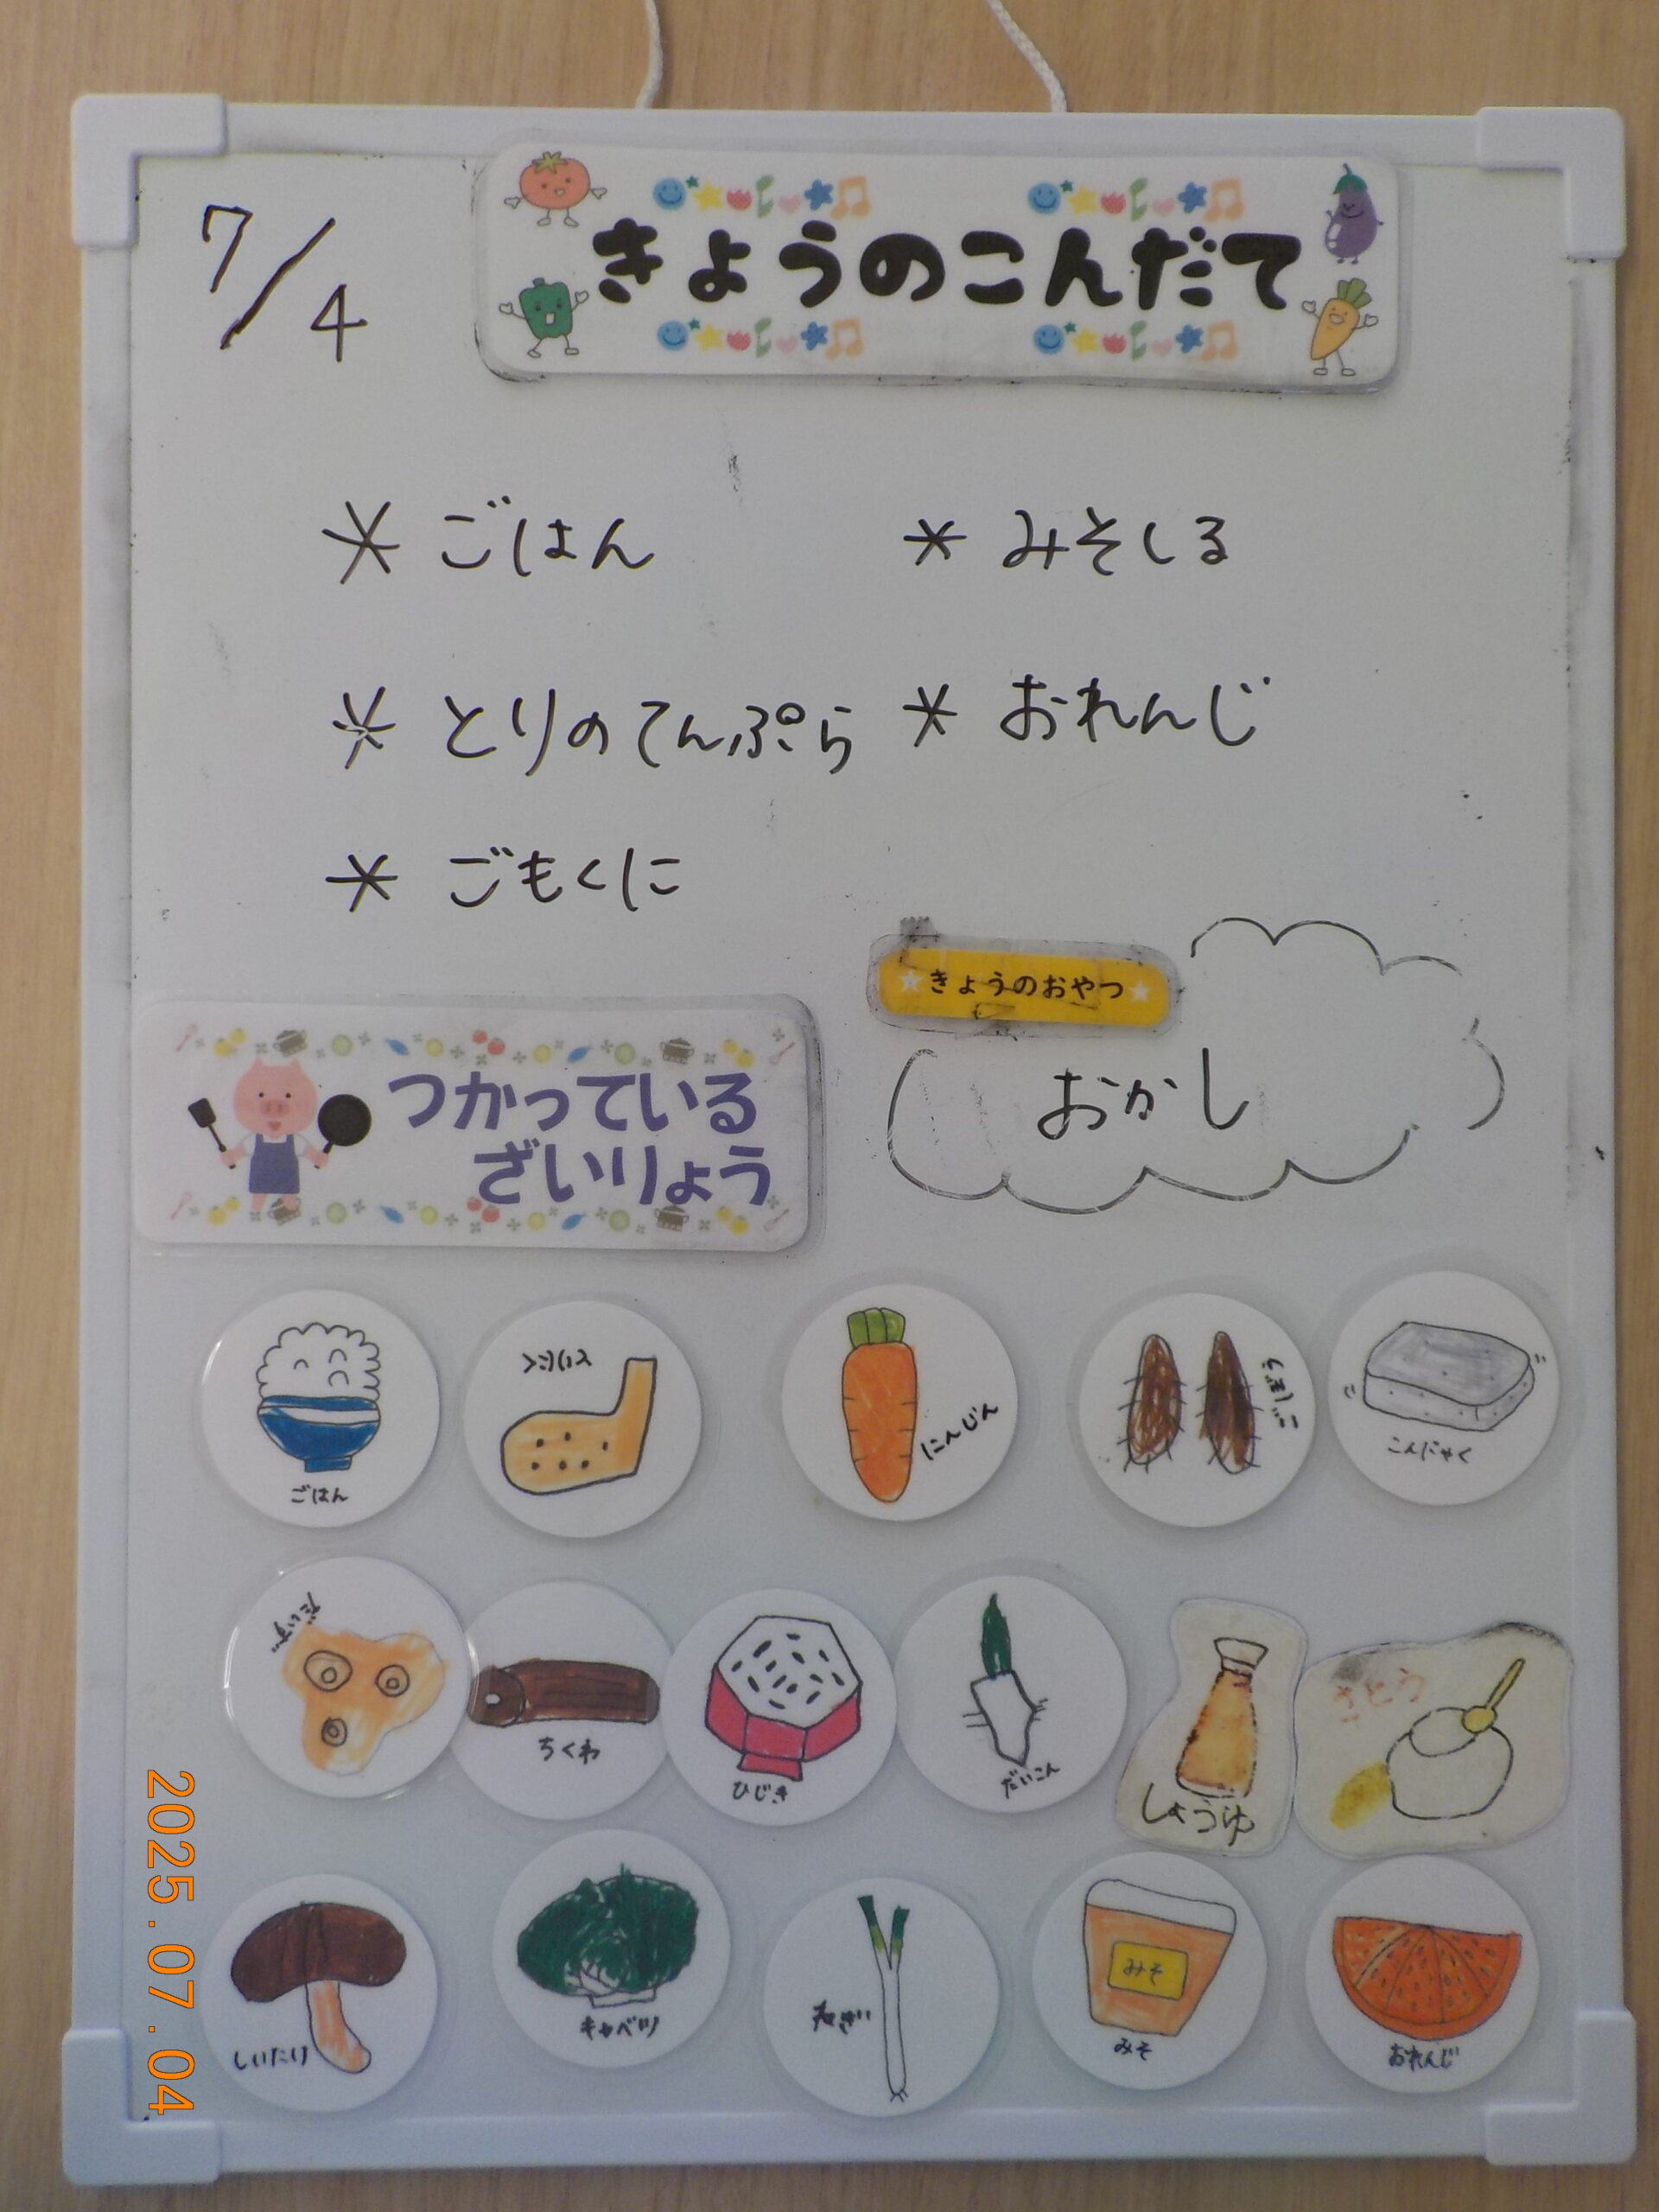 7/4
きょうのこんだて
* ごはん
* みそしる
* とりのてんぷら
* おれんじ
* ごもくに
★きょうのおやつ★
おかし
つかっている
ざいりょう
ごはん
にんじん
ごぼう
こんにゃく
だいず
ちくわ
ひじき
だいこん
しょうゆ
さとう
しいたけ
キャベツ
ねぎ
みそ
みそ
おれんじ
2025.07.04